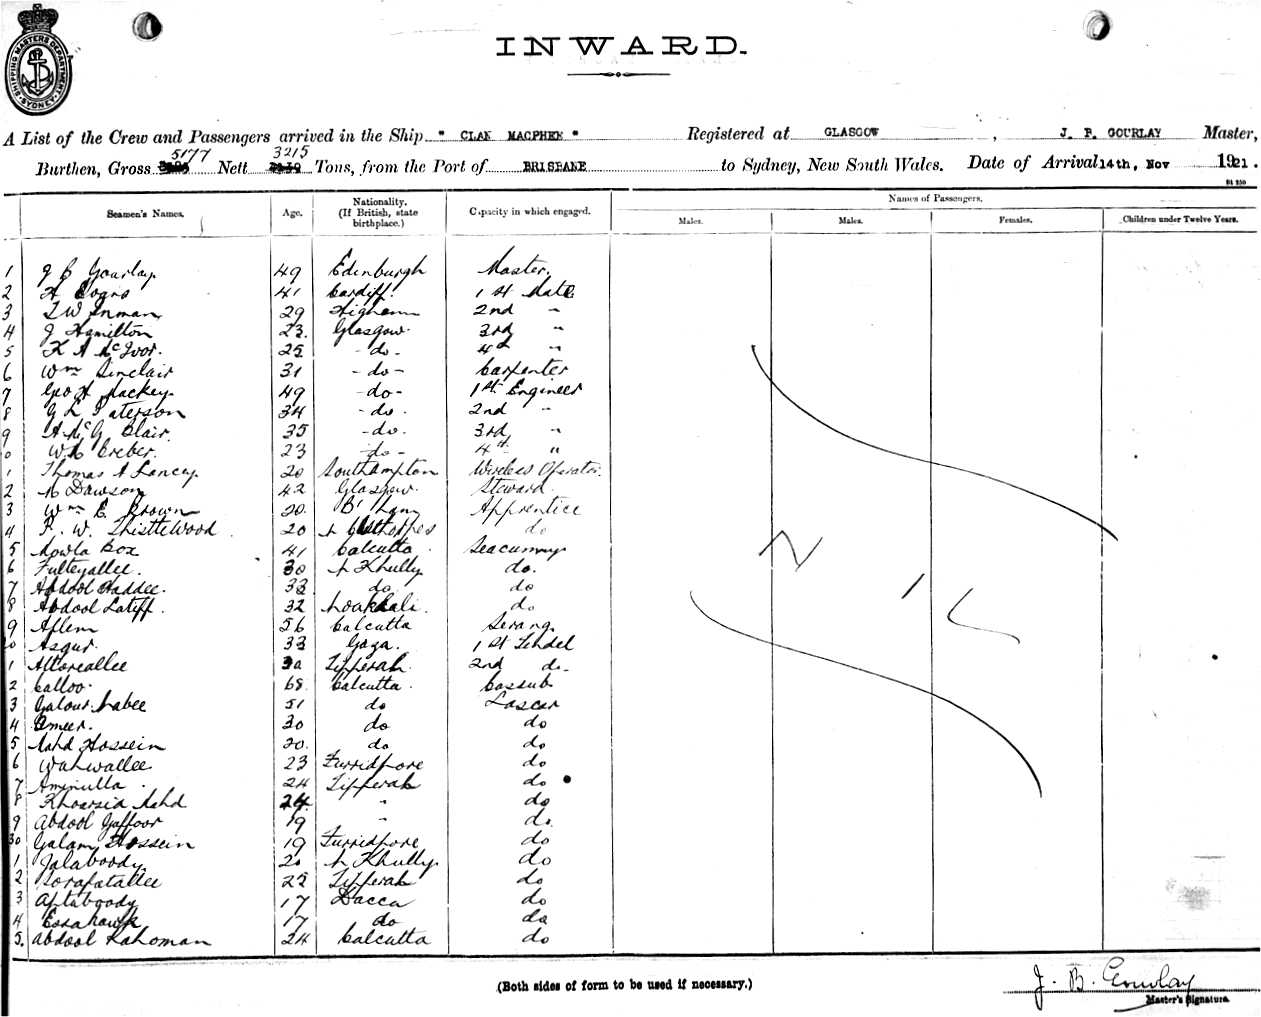 SHIPPING MASTERS DEPARTMENT SYDNEY
INWARD.
A List of the Crew and Passengers arrived in the Ship " CLAN MACPHEE " Registered at GLASGOW, J. B. GOURLAY Master,
Burthen, Gross 5177 Nett 3215 Tons, from the Port of BRISBANE to Sydney, New South Wales. Date of Arrival 14th, Nov 1921.
Seamen's Names. Age. Nationality. (If British, state birthplace.) Capacity in which engaged. Names of Passengers.
Males. Males. Females. Children under Twelve Years.
1 J B Gourlay 49 Edinburgh Master.
2 H Evans 41 Cardiff. 1st Mate
3 T W Inman 29 Higham 2nd "
4 J Hamilton 23. Glasgow. 3rd "
5 K A McIvor. 25 - do - 4th "
6 Wm Sinclair 31 - do - Carpenter
7 Geo H Mackey 49 - do - 1st Engineer
8 G L Paterson 34 - do. 2nd "
9 A McG Blair. 35 - do. 3rd "
0 W. Creber. 23 - do - 4th "
1 Thomas A Lancey 20 Southampton Wireless Operator.
2 Dawson 42 Glasgow. Steward.
3 Wm E. Brown 20. B'ham Apprentice
4 F. W. Thistlewood 20 do
5 Mowla Box 41 Calcutta Seacunny
6 Futteyallee. 30 N Khully do.
7 Abdool Haddee. 33 do do
8 Abdool Latiff. 32 Noakhali. do
9 Aflem 56 Calcutta Serang.
0 Asgur. 33 Gaza. 1st Tendel
1 Altareallee 30 Tipperah 2nd do.
2 Calloo. 68 Calcutta. Cassub
3 Golour Nabee 51 do Lascar
4 Omeer. 30 do do
5 Mahd Hossein 20. do do
6 Wahwallee 23 Furridpore do
7 Aminulla. 24 Tipperah do
8 Khoarsid Mahd 24 " do
9 Abdool Gaffoor 19 " do.
30 Golam Hossein 19 Furridpore do
1 Jalaboody. 20 N Khully. do
2 Torafatallee 22 Tipperah do
3 Aftaboody 17 Dacca do
4 Essahawk 17 do do
5. Abdool Rahoman 24 Calcutta do
NIL
(Both sides of form to be used if necessary.)
J. B. Gourlay
Master's Signature.